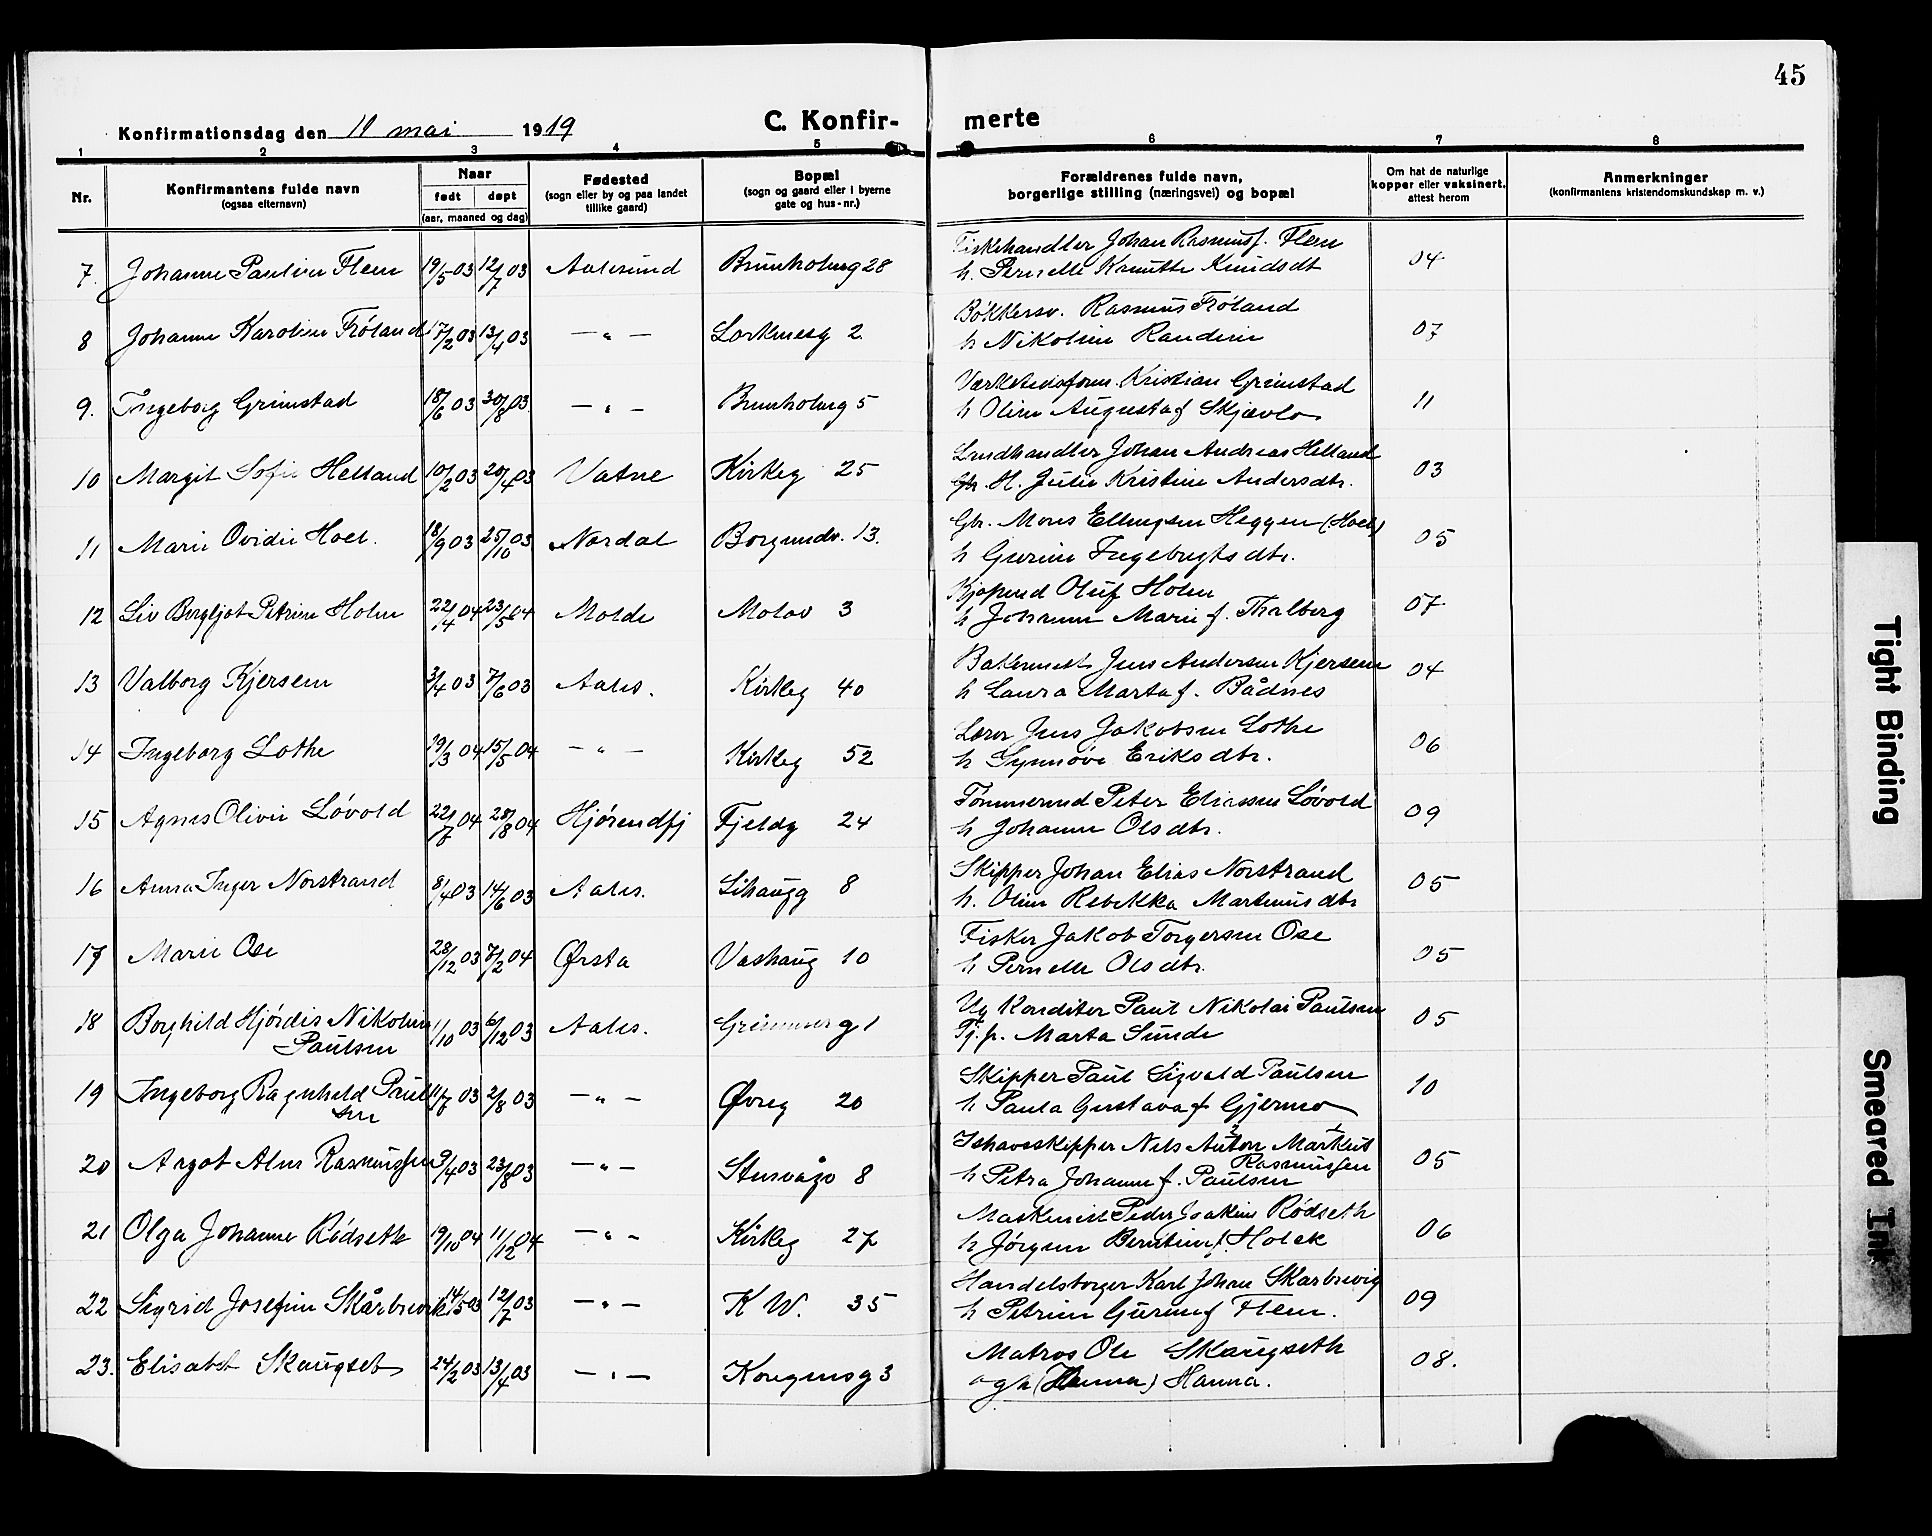 45
Konfirmationsdag den 11 mai 1919
C. Konfir- merte
1 2 3 4 5 6 7 8
Nr.
Konfirmantens fulde navn
(ogsaa efternavn)
Naar
født døpt
(aar, maaned og dag)
Fødested
(sogn eller by og paa landet
tillike gaard)
Bopæl
(sogn og gaard eller i byerne
gate og hus-nr.)
Forældrenes fulde navn,
borgerlige stilling (næringsvei) og bopæl
Om hat de naturlige
kopper eller vaksinert.
attest herom
Anmerkninger
(konfirmantens kristendomskundskap m. v.)
7. Johanne Pauline Flem 19/5 03 12/7 03 Aalesund Brunholmg 28 Fiskehandler Johan Rasmus f. Flem 04
h. Pernelle Knutte Knudsdt
8 Johanne Karoline Frøland 17/2 03 13/4 03 — " — Lorkenesg 2. Bøkkersv. Rasmus Frøland 07
h Nikoline Randine
9. Ingeborg Grimstad 18/6 03 30/8 03 — " — Brunholmg 5 Verkstedsform. Kristian Grimstad 11
h Oline Augusta f Skjævlo
10 Margit Sofie Helland 10/2 03 20/4 03 Vatne Kirkeg 25 Landhandler Johan Andreas Helland 03
H. Julie Kristine Andersdtr.
11 Marie Ovidie Hoel. 18/9 03 25/10 03 Nordal Borgundv. 13. Gbr. Mons Ellingsen Heggen (Hoel) 05
h Gurine Ingebrigtsdtr.
12 Liv Bergljot Petrine Holm 22/4 04 23/5 04 Molde Molov 3 Kjøpmd Oluf Holm 07
h Johanne Marie f. Thalberg
13 Valborg Kjersem 3/4 03 7/6 03 Aales. Kirkeg 40 Bakermest Jens Andersen Kjersem 04
h Laura Marta f. Bådnes
14 Ingeborg Lothe 19/3 04 15/5 04 — " — Kirkeg 52 Lærer Jens Jakobsen Lothe 06
h Synnøve Eriksdtr.
15 Agnes Olivie Løvold 22/7 04 28/8 04 Hjørendfj Fjeldg 24 Tømmermd Peter Eliassen Løvold 09
h Johanne Olsdtr.
16 Anna Inger Norstrand 8/4 03 14/6 03 Aales. Lihaugg 8 Skipper Johan Elias Norstrand 05
h. Oline Rebekka Martinusdtr
17 Marie Ose 28/12 03 7/2 04 Ørsta Vashaug 10 Fisker Jakob Torgersen Ose 05
h Pernelle Olsdtr.
18 Borghild Hjørdis Nikoline 1/10 03 6/12 03 Aales. Grimmerg 1 Ug Konditer Paul Nikolai Paulsen 05
Paulsen Pj. p. Marta Sunde
19 Ingeborg Ragnhild Paul 11/6 03 2/8 03 — " — Øvreg 20 Skipper Paul Sigvald Paulsen 10
sen h Paula Gustava f Gjermo
20 Argot Alms Rasmussen 9/4 03 23/8 03 — " — Stenvågv 8 Ishavsskipper Nils Anton Markut 05
Rasmussen
h Petra Johanne f. Paulsen
21 Olga Johanne Rødseth 19/10 04 11/12 04 — " — Kirkeg 27 Maskinist Peder Joakim Rødseth 06
h Jørgine Berntine f. Holck
22 Sigrid Josefine Skårbrevik 14/5 03 12/7 03 — " — K W. 35 Handelsborger Karl Johan Skarbrevig 09
h Petrine Gurine f Flem.
23. Elisabet Skaugset 24/2 03 13/4 03 — " — Kongensg 3 Matros Ole Skaugseth 08.
og h (Hanna) Hanna.
Tight Binding
Smeared Ink